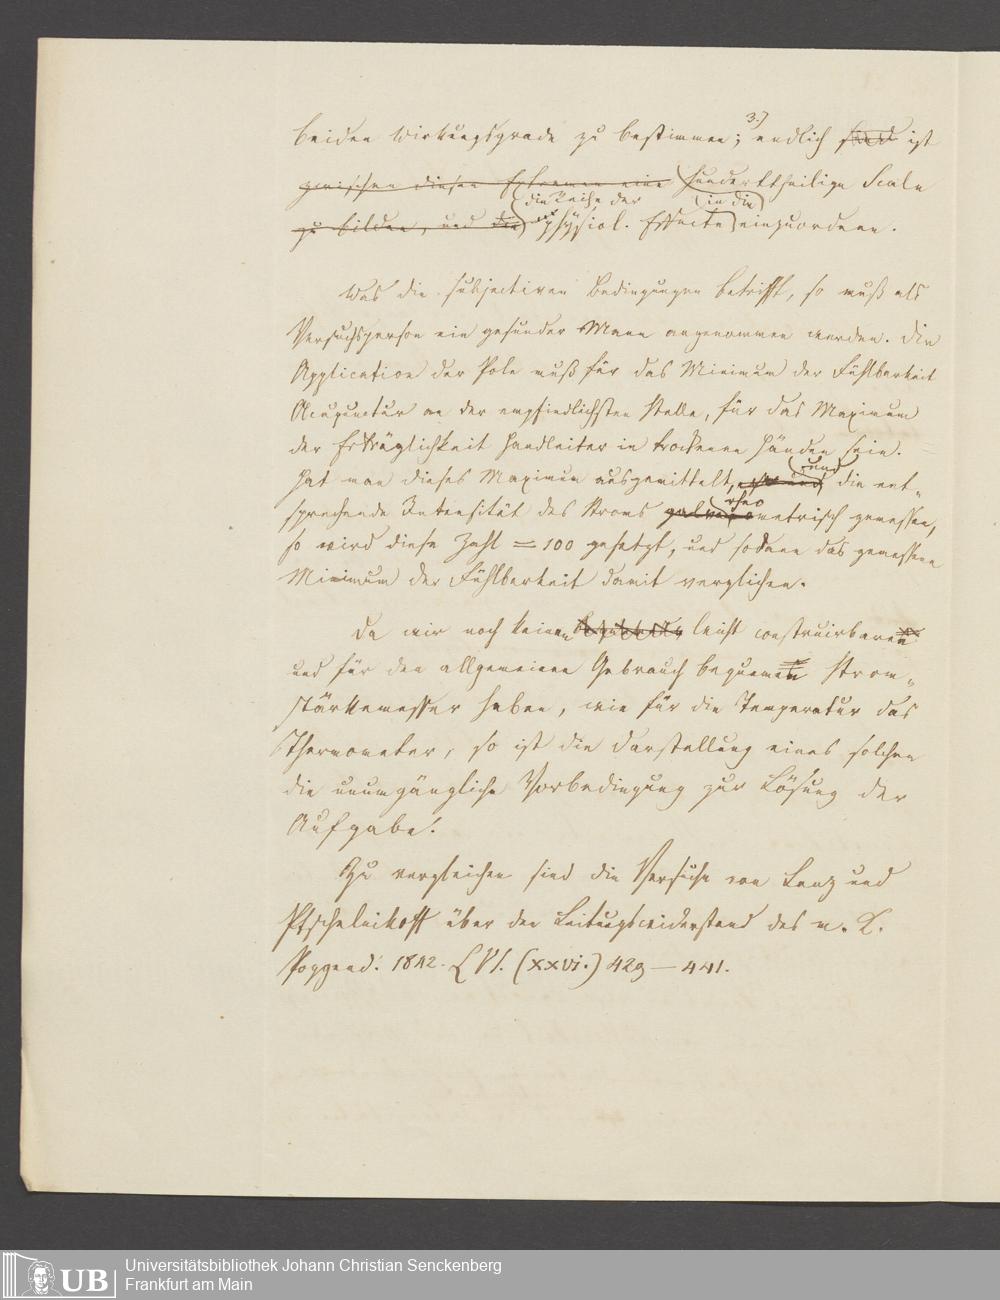 beiden Wirkungsgrade zu bestimmen; 3.) endlich ist
zwischen diesen Extremen eine hunderttheilige Scala
zu bilden, und die die Reihe der physiol. Effecte in die einzuordnen.
Was die subjectiven Bedingungen betrifft, so muß als
Versuchsperson ein gesunder Mann angenommen werden. Die
Application der Pole muß für das Minimum der Fühlbarkeit
Acupunctur an der empfindlichsten Stelle, für das Maximum
der Erträglichkeit Handleiter in trockenen Händen sein.
Hat man dieses Maximum ausgemittelt, und die ent-
sprechende Intensität des Stroms galvano rheometrisch gemessen,
so wird diese Zahl = 100 gesetzt, und sodann das gemessene
Minimum der Fühlbarkeit damit verglichen.
Da wir noch keinen leicht construirbaren
und für den allgemeinen Gebrauch bequemen Strom-
stärkemesser haben, wie für die Temperatur das
Thermometer, so ist die Darstellung eines solchen
die unumgängliche Vorbedingung zur Lösung der
Aufgabe.
Zu vergleichen sind die Versuche von Lenz und
Ptschelnikoff über den Leitungswiderstand des m. K.
Poggend. 1842. LVI. (XXVI.) 429–441.
Universitätsbibliothek Johann Christian Senckenberg
UB Frankfurt am Main